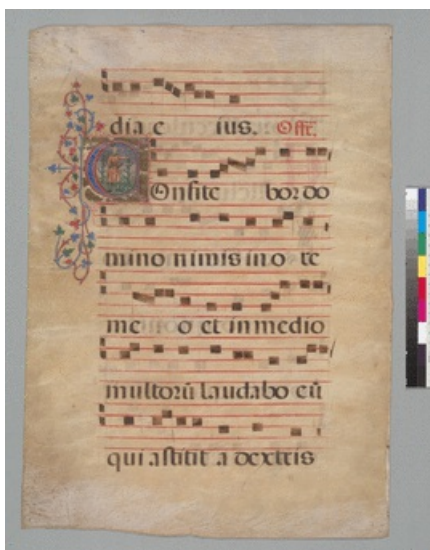 dia e ius. Offr.
Onfite bor do
mino nimis in o re
me o et in medio
multorū laudabo eū
qui astitit a dextris